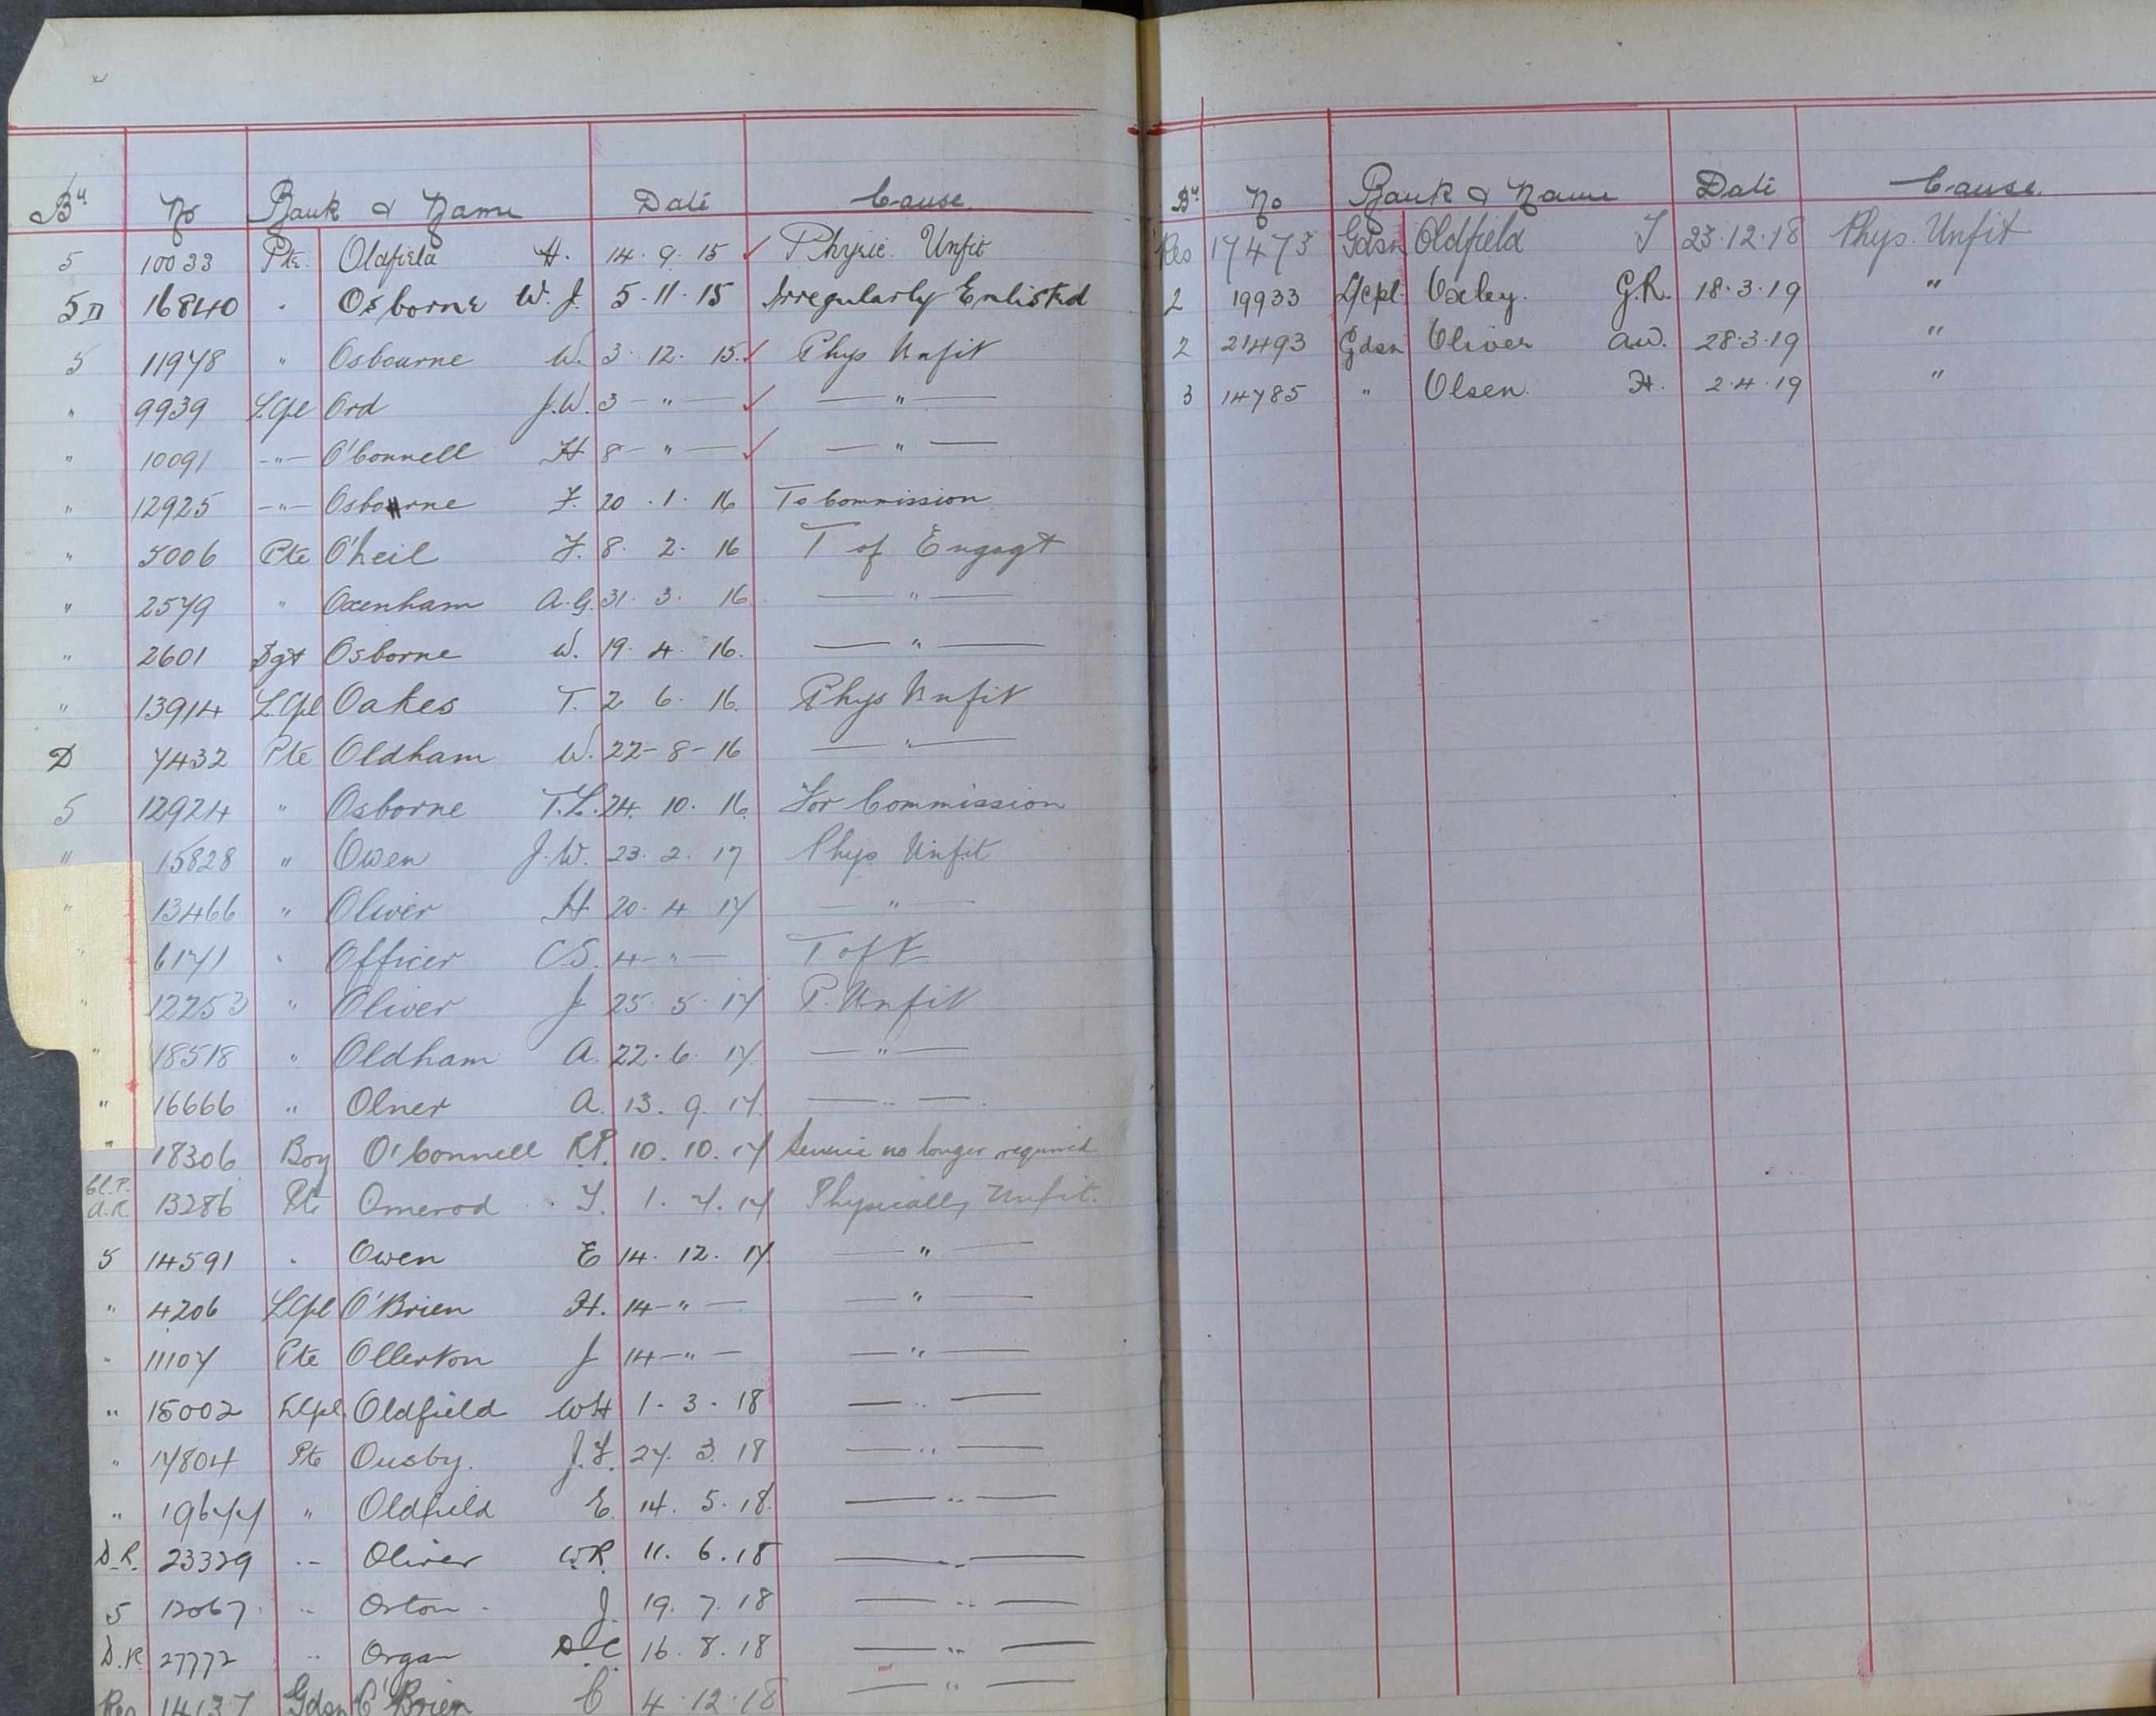 Bn No Rank & Name Date Cause
5 10033 Pte. Oldfield H. 14. 9. 15 ✓ Physic. Unfit
5 D 16840 " Osborne W. J. 5. 11. 15 Irregularly Enlisted
5 11978 " Osbourne W. 3. 12. 15. ✓ Phys Unfit
" 9939 L.Cpl Ord J.W. 3 — " — ✓ — " —
" 10091 — " — O'Connell H 8 — " — ✓ — " —
" 12925 — " — Osborne F. 20. 1. 16 To Commission
" 5006 Pte O'Neil F. 8. 2. 16 T of Engagt
" 2579 " Oxenham A.G. 31. 3. 16 — " —
" 2601 Sgt Osborne W. 19. 4. 16. — " —
" 13914 L.Cpl Oakes T. 2 6. 16. Phys Unfit
D 7432 Pte Oldham W. 22-8-16 — " —
5 12924 " Osborne T.L. 24. 10. 16. For Commission
" 15828 " Owen J.W. 23. 2. 17 Phys Unfit
" 13466 " Oliver H 20. 4 17 — " —
" 6171 " Officer C.S. 4 — " — T of
" 12253 " Oliver J 25. 5. 17 P. Unfit
" 18518 " Oldham A. 22. 6. 17. — " —
" 16666 " Olner A. 13. 9. 17. — " —
" 18306 Boy O'Connell R.P. 10. 10. 17 Service no longer required
13286 Pte Omerod T. 1. 7. 17 Physically Unfit.
5 14591 " Owen E 14. 12. 17 — " —
" 4206 L.Cpl O'Brien H. 14 — " — — " —
" 11107 Pte Ollerton J 14 — " — — " —
" 15002 L.Cpl. Oldfield WH 1. 3. 18 — " —
" 17804 Pte Ousby. J.F. 27. 3. 18 — " —
" 19677 " Oldfield E. 14. 5. 18. — " —
D.R. 23329 " Oliver W.R. 11. 6. 18 — " —
5 12067 " Orton J. 19. 7. 18 — " —
D.R. 27772 " Organ D.C. 16. 8. 18 — " —
Res 14137 Gdsn O'Brien C 4. 12. 18 — " —
Bn No Rank & Name Date Cause.
Res 17473 Gdsn Oldfield T 23. 12. 18 Phys. Unfit
2 19933 L/cpl. Oxley. G.R. 18. 3. 19 "
2 21493 Gdsn Oliver AW. 28. 3. 19 "
3 14785 " Olsen. H. 2. 4. 19 "